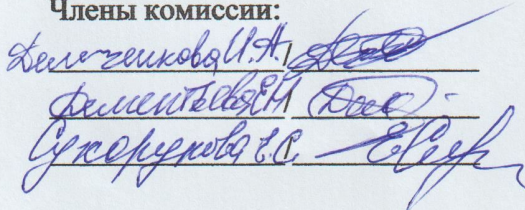 Члены комиссии:
Демченкова И.А. /
Дементьева Е.Н. /
Сухорукова Е.С. /